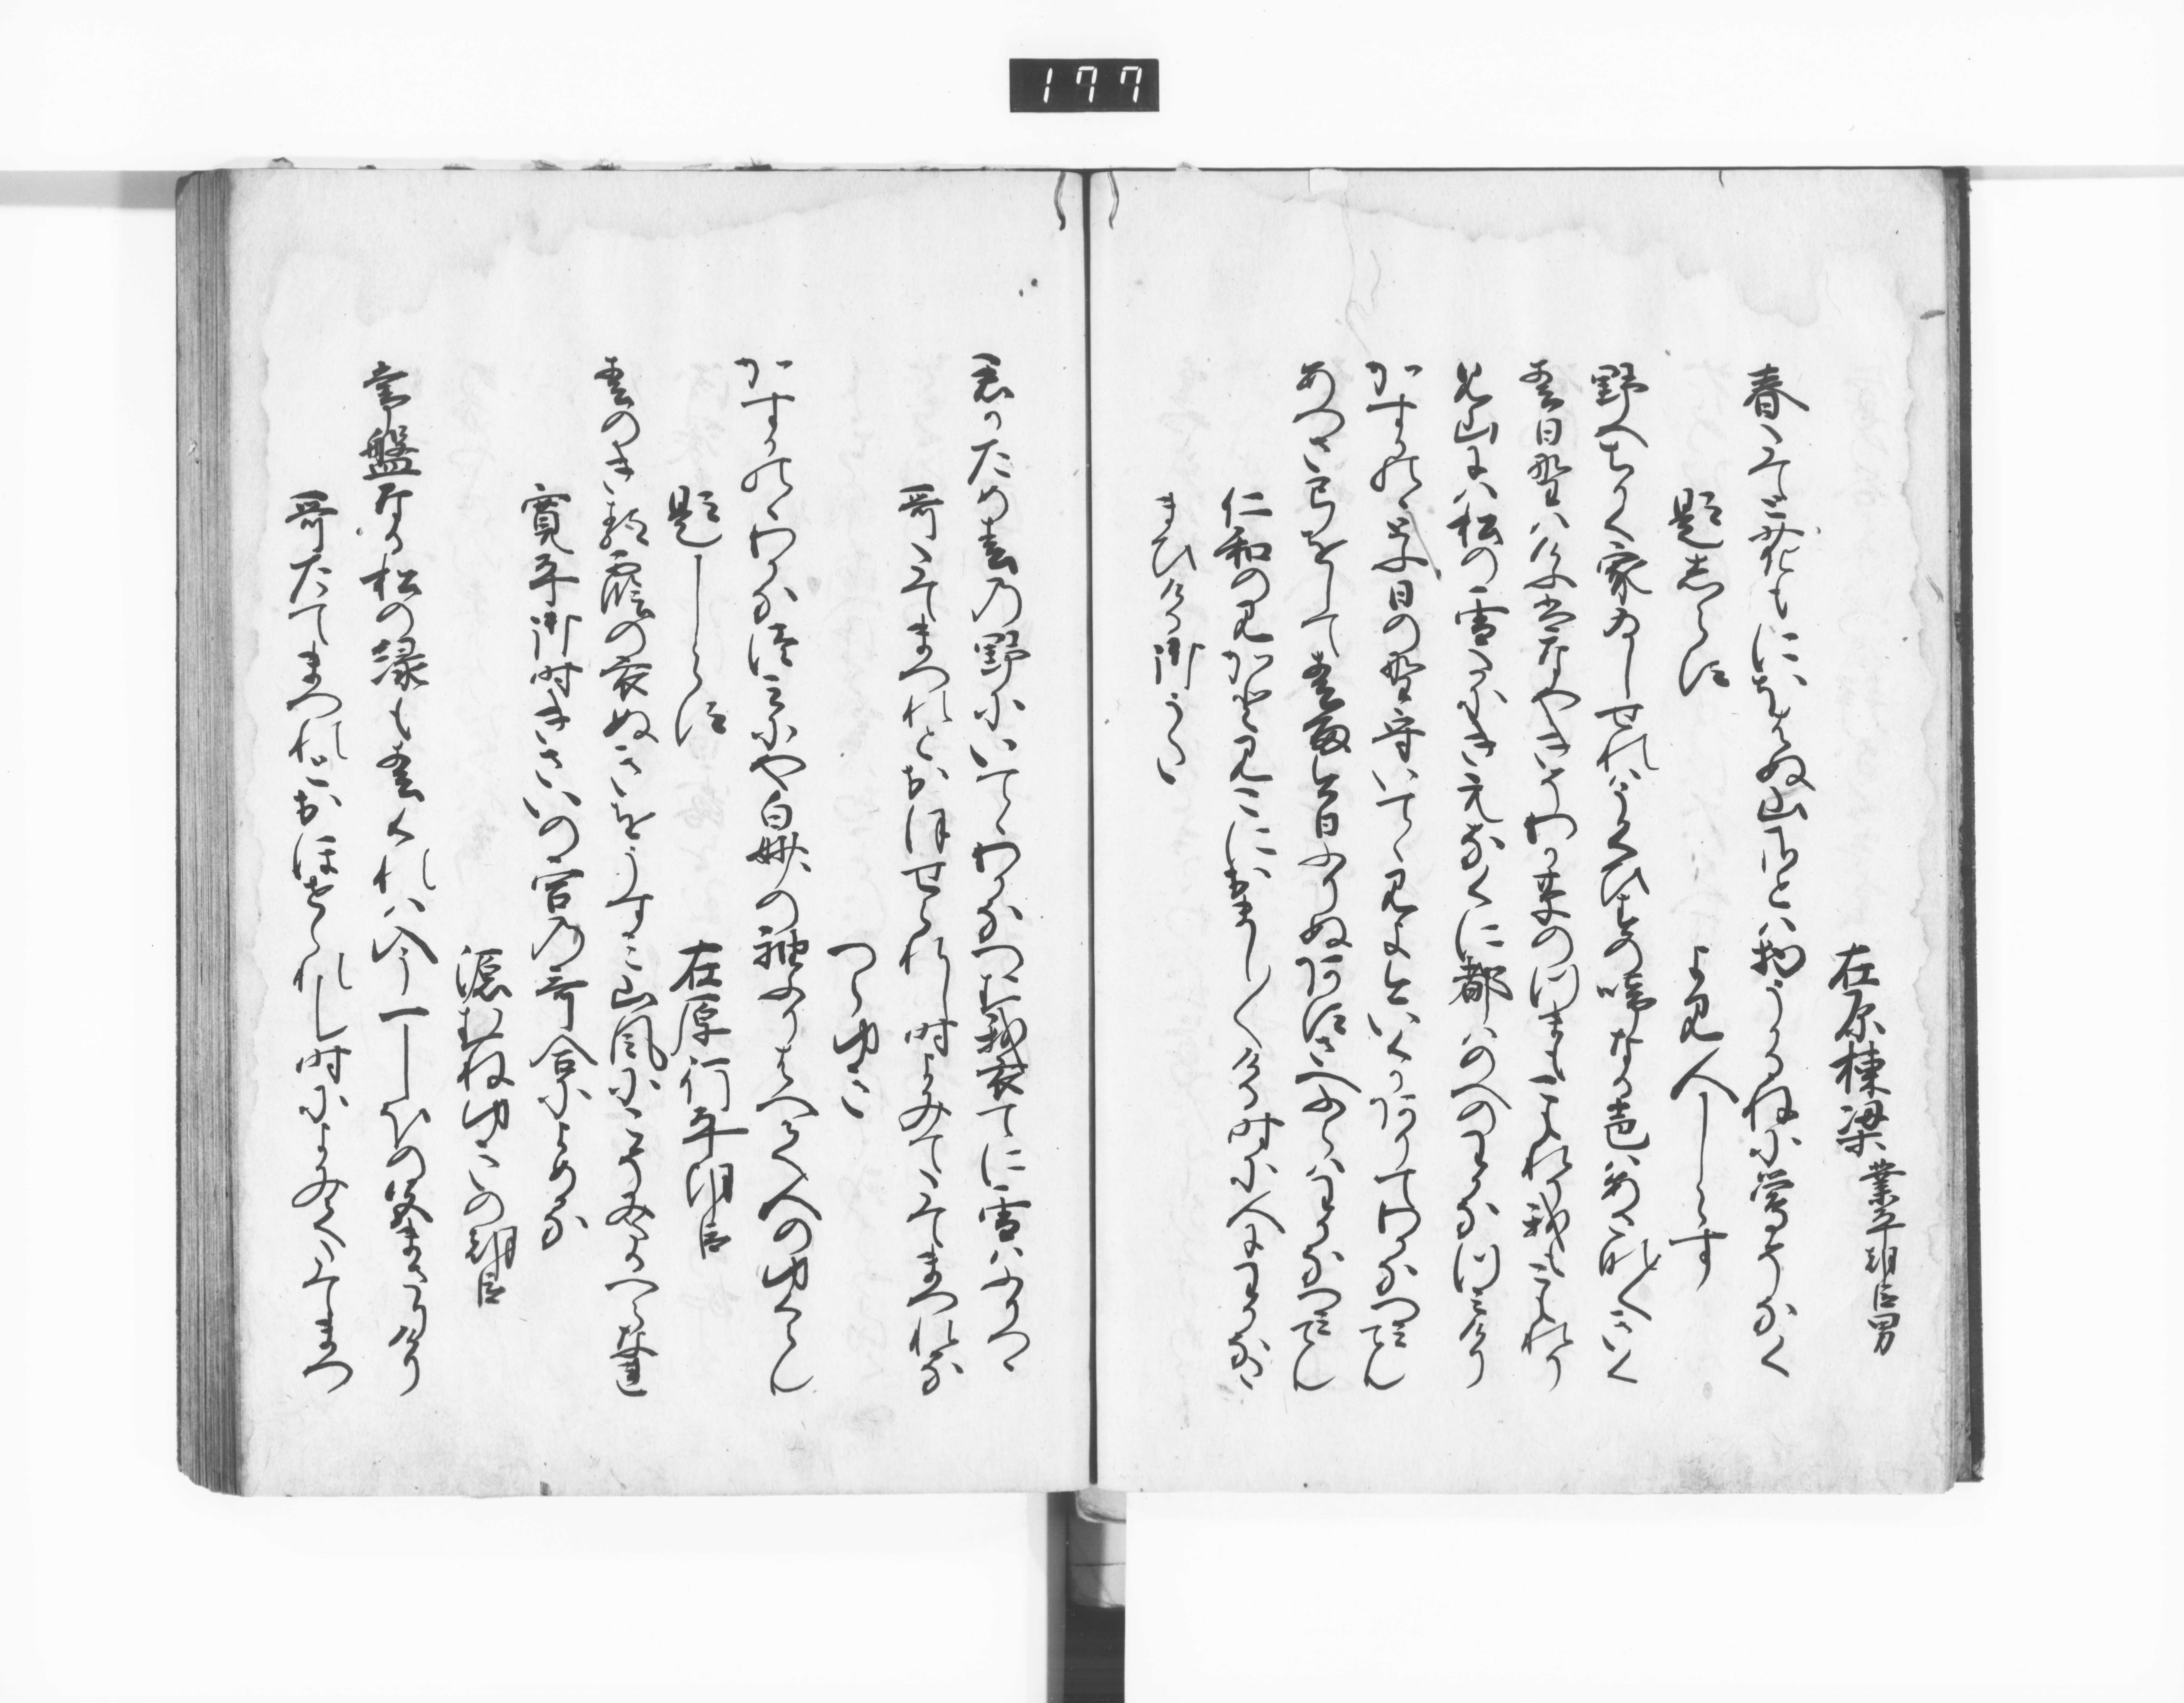 177
在原棟梁 業平朝臣男
春たてと花もにほはぬ山さとは物うかるねに鶯そなく
題しらす
よみ人しらす
野へちかく家ゐしせれはうくひすの鳴なる声はあさな〳〵きく
春日野はけふはなやきそわか草のつまもこもれり我もこもれり
み山には松の雪たにきえなくに都はのへのわかなつみけり
かすか野ゝ飛日の野守いてゝ見よ今いくかありてわかなつみてん
あつさ弓をして春雨けふふりぬあすさへふらはわかなつみてん
仁和のみかとみこにおましましける時に人にわかな
たまひける御うた
君かため春の野にいてゝわかなつむ我衣てに雪はふりつゝ
哥たてまつれとおほせられし時よみてたてまつれる
つらゆき
かすか野ゝわかなつみにや白妙の袖ふりはへて人のゆくらん
題しらす
在原行平朝臣
春のきる霞の衣ぬきをうすみ山風にこそみたるへら也
寛平御時きさいの宮の哥合によめる
源むねゆきの朝臣
常盤なる松の緑も春くれは今一しほの色まさりけり
哥たてまつれとおほせられし時によみてたてまつ